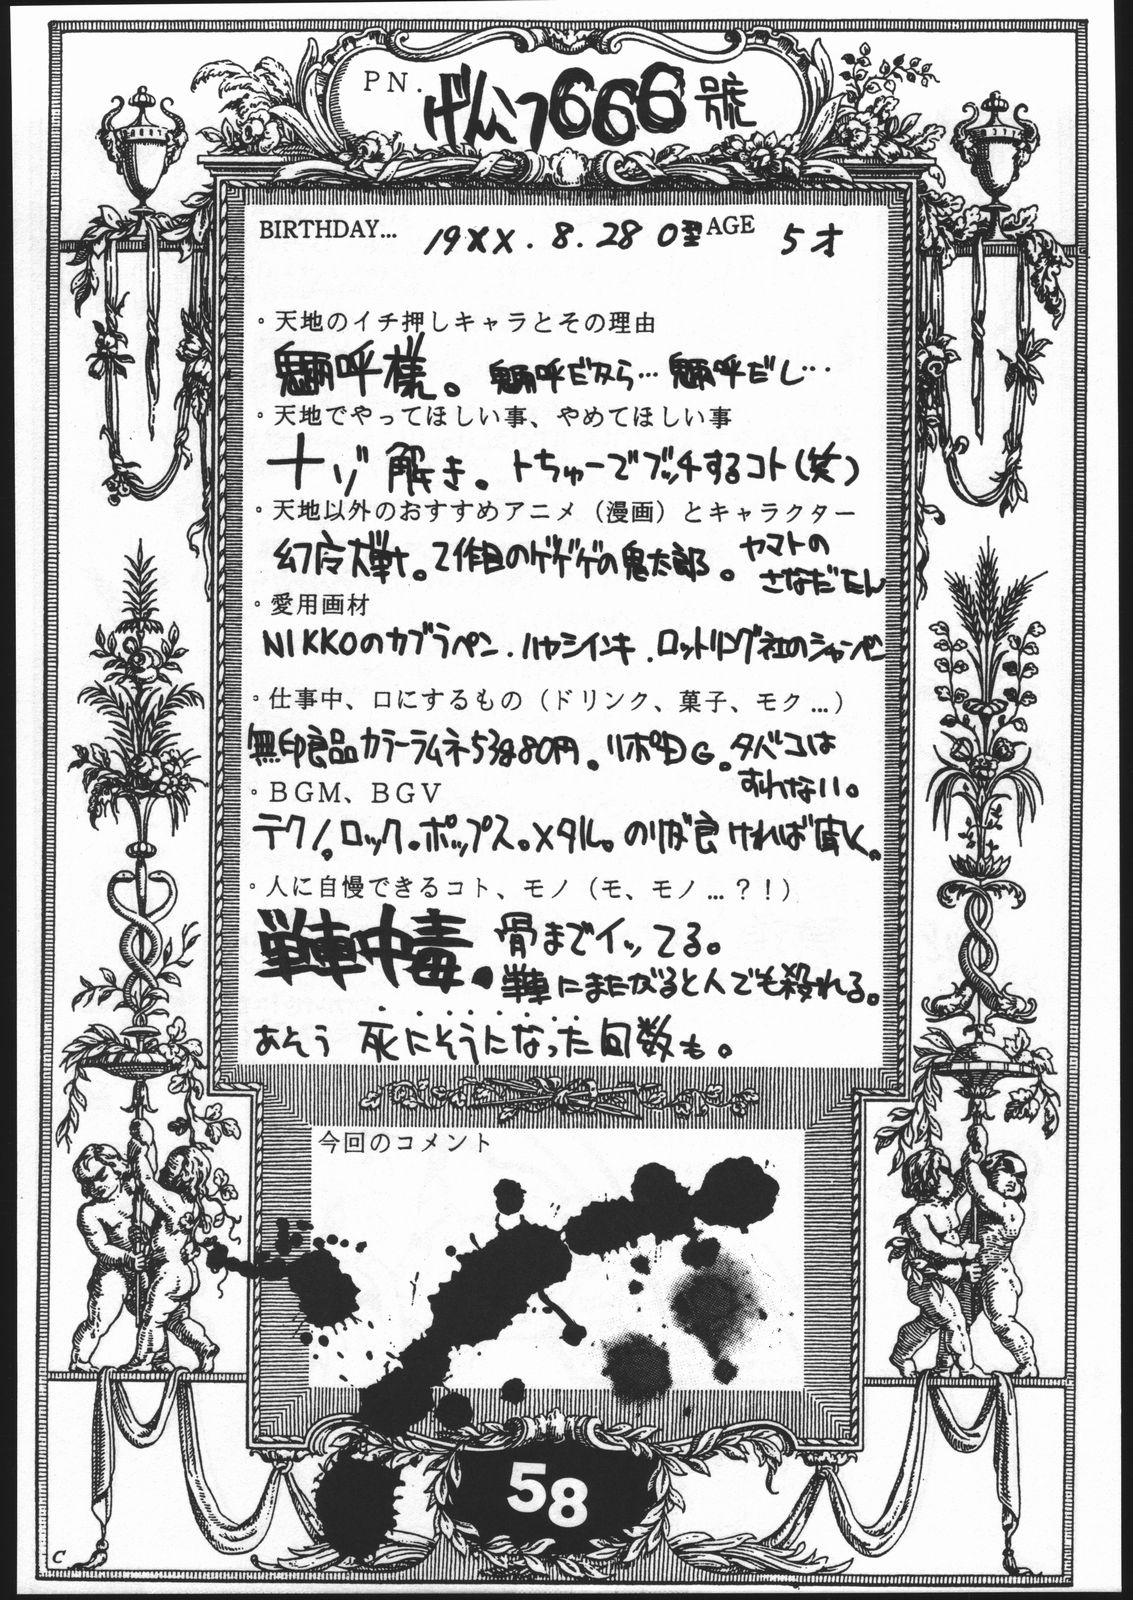 PN. げんこつ666號
BIRTHDAY... 19XX. 8. 28 O型 AGE 5才
・天地のイチ押しキャラとその理由
魎呼様。魎呼だから…魎呼だし…
・天地でやってほしい事、やめてほしい事
ナゾ解き。トちゅーでブッチするコト(笑)
・天地以外のおすすめアニメ（漫画）とキャラクター
幻魔大戦。2作目のゲゲゲの鬼太郎。ヤマトの
さなだたん
・愛用画材
NIKKOのカブラペン.ハヤシインキ.ロットリング社のシャーペン
・仕事中、口にするもの（ドリンク、菓子、モク…）
無印良品カラーラムネ53g80円。リポDG。タバコは
すわない。
・BGM、BGV
テクノ。ロック。ポップス。メタル。のりが良ければ
・人に自慢できるコト、モノ（モ、モノ…？！）
単車中毒。骨までイッてる。
単車にまたがると人でも殺れる。
あそう 死にそうになった回数も。
今回のコメント
…
58
C